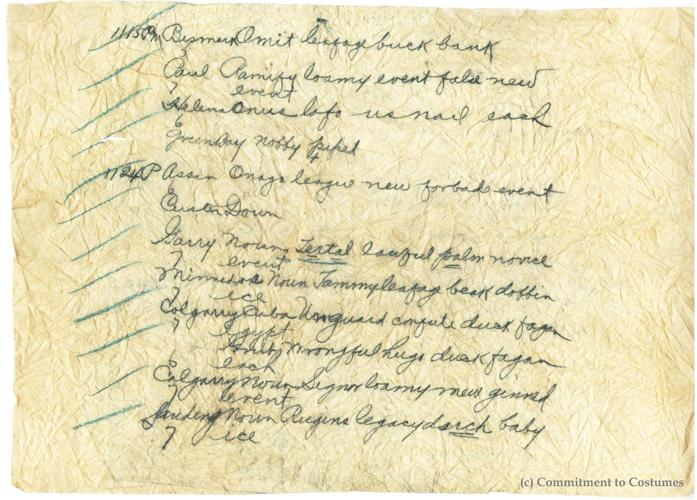 1115Pm Bismark Omit leafage buck bank
Paul Ramify loamy event false new
event
Helena Onus lofo usnail each
6
Green Bay nobby peped
1124P Assin Onago league new forbade event
6
Custer Down
Garry Noun Tertal lawful palm novice
7 event
Minnedos Noun Jammyleafage beak dobbin
7 ice
Calgarry Cuba Unguard confute duck fagan
7 egypt
Wrongful hugo duck fagan
each
Calgarry Noun Signor loamy mew ginned
7 event
Landing Noun Rugins legacy duch baby
7 ice
(c) Commitment to Costumes